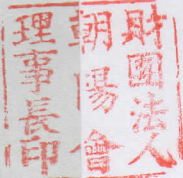 財團法人
朝陽會
理事長印